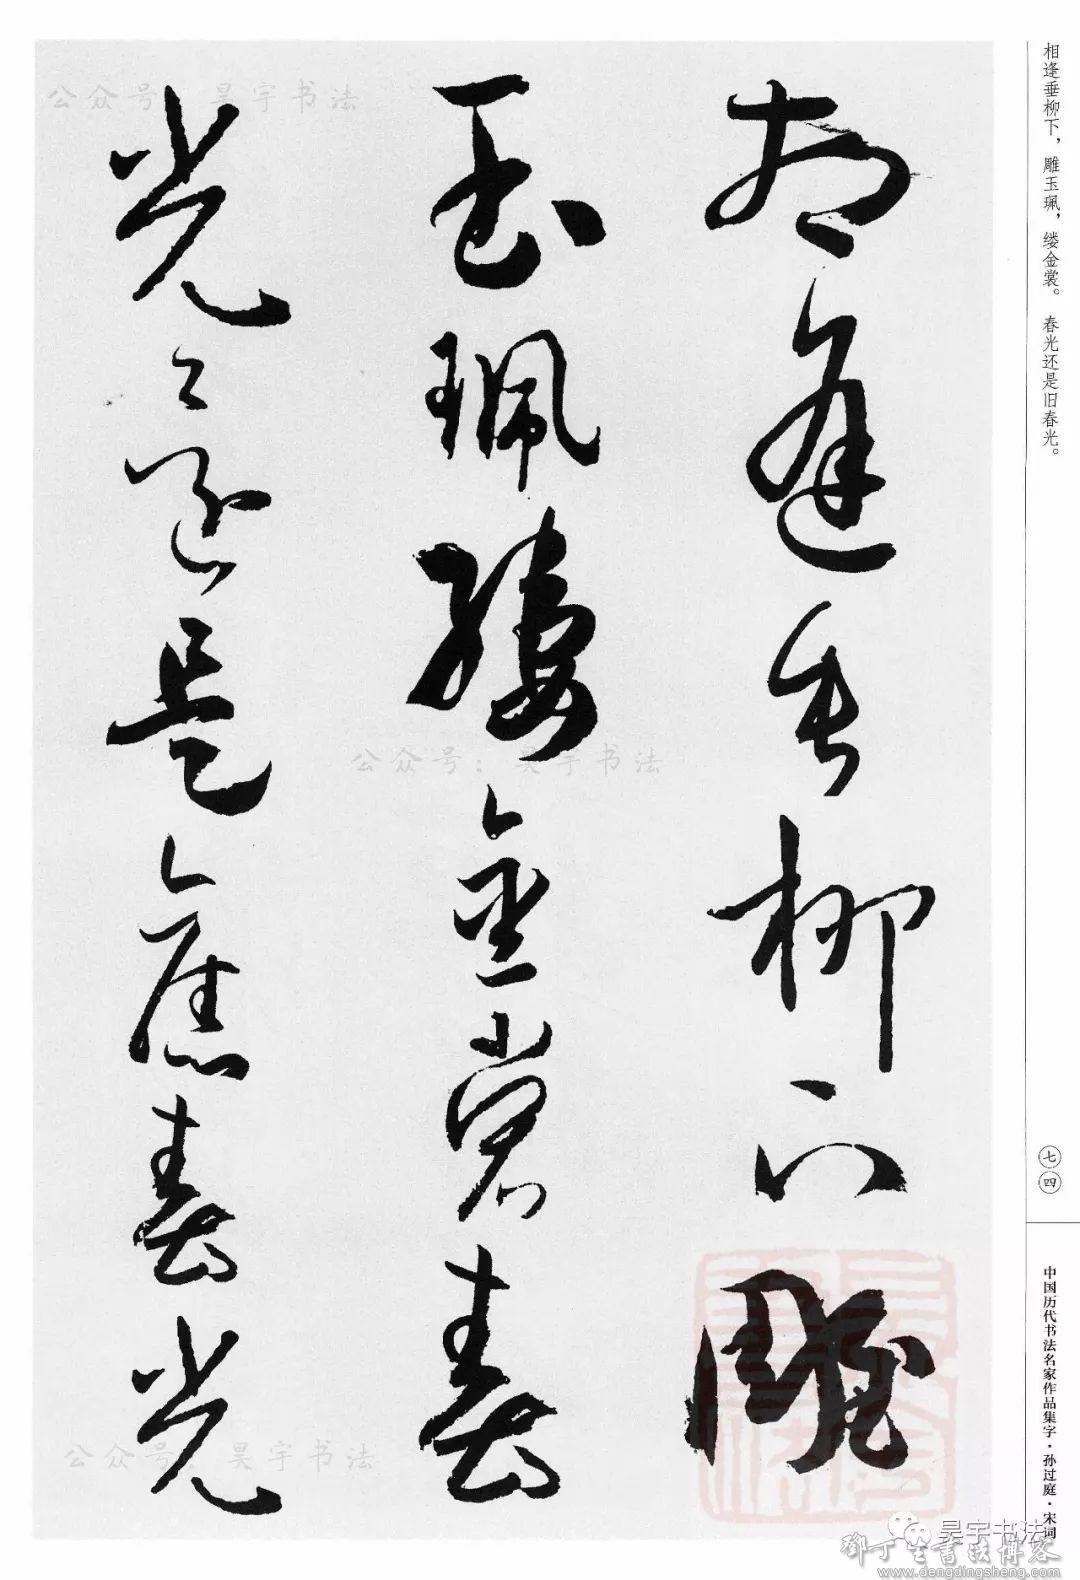 相逢垂柳下，雕玉珮，缕金裳。春光还是旧春光。
相逢垂柳下雕
玉珮縷金裳春
光還是舊春光
七四
中国历代书法名家作品集字·孙过庭·宋词
公众号：昊宇书法
公众号：昊宇书法
公众号：昊宇书法
昊宇书法
鄧丁生書法博客
www.dengdingsheng.com